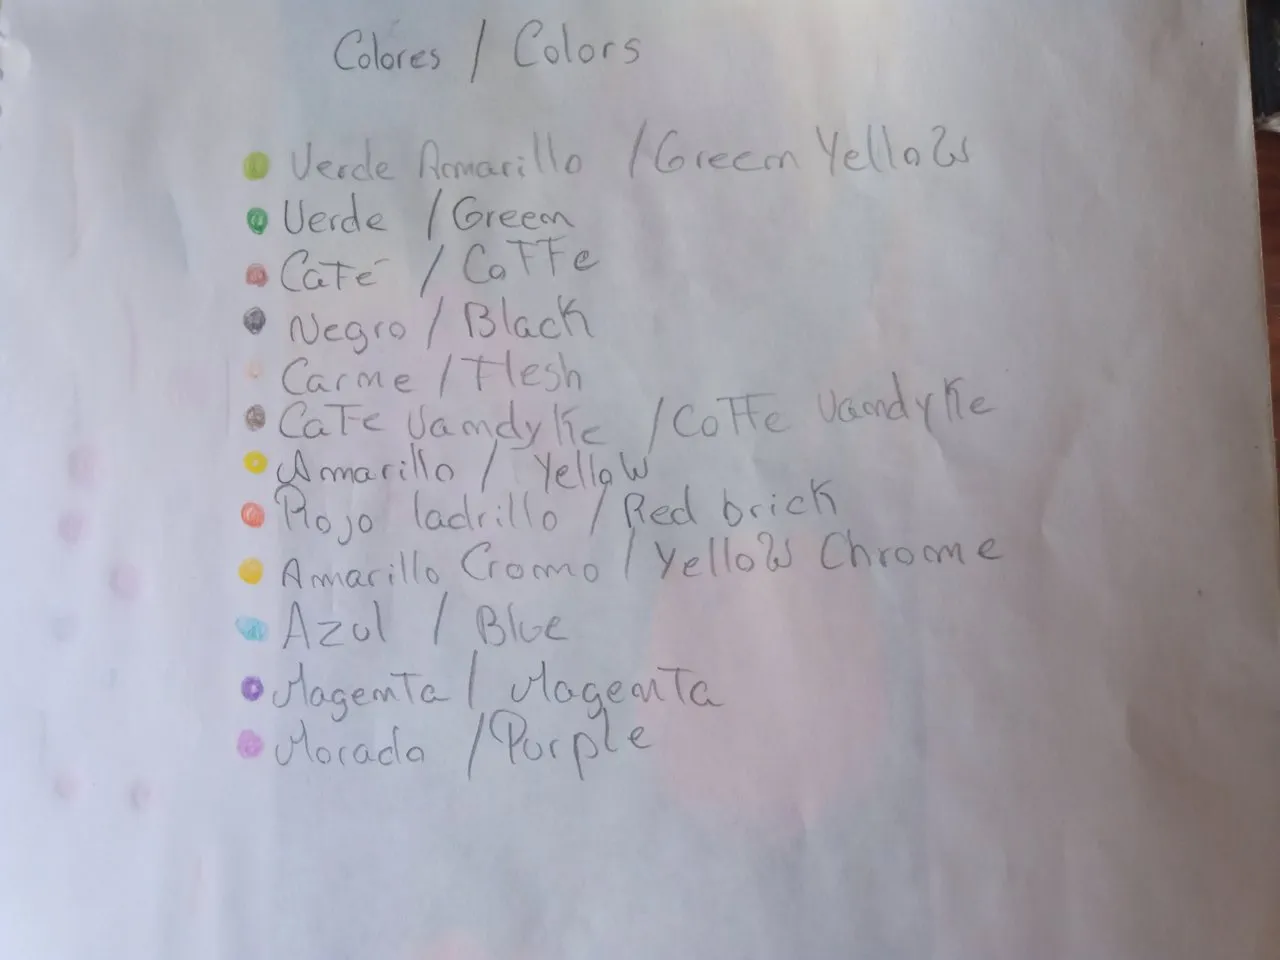 Colores / Colors
Verde Amarillo / Green Yellow
Verde / Green
Café / Coffe
Negro / Black
Carne / Flesh
Cafe Vandyke / Coffe Vandyke
Amarillo / Yellow
Rojo ladrillo / Red brick
Amarillo Cromo / Yellow Chrome
Azul / Blue
Magenta / Magenta
Morado / Purple